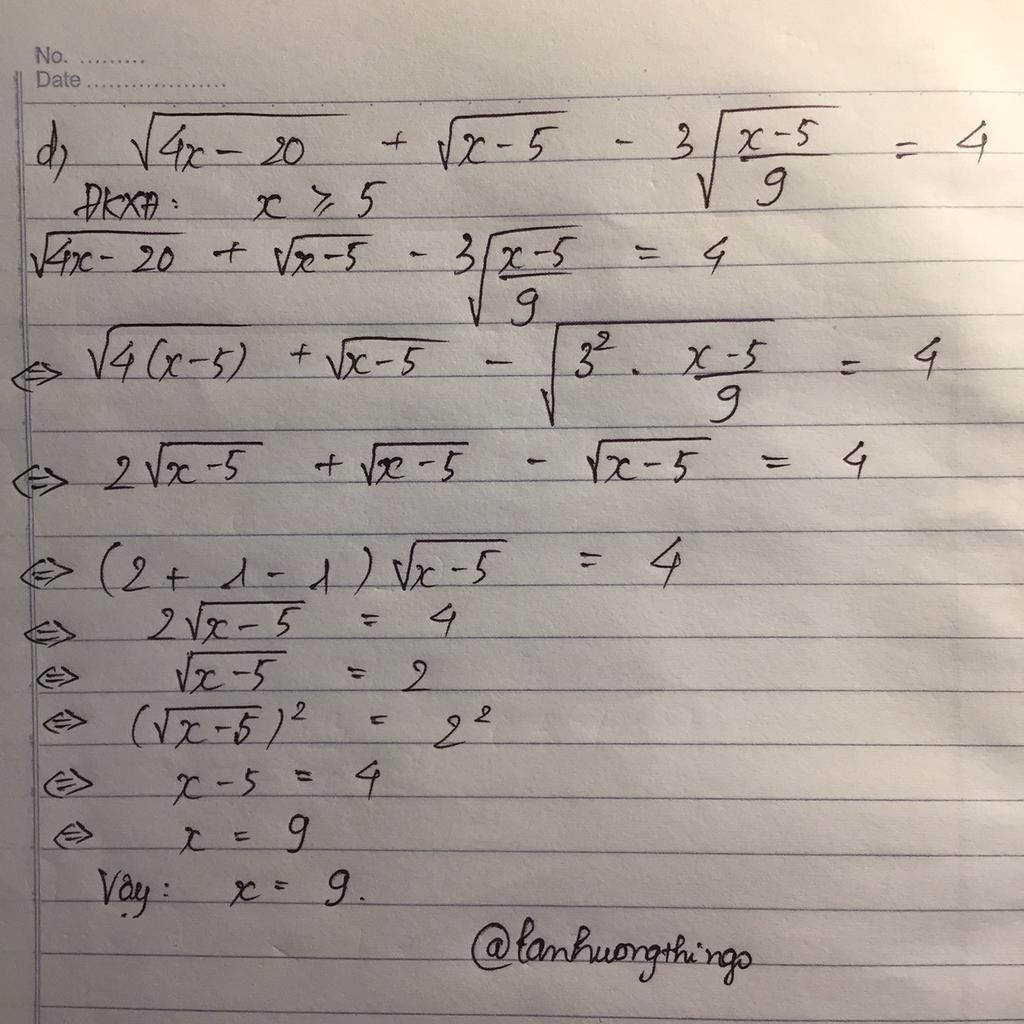 No. .........
Date ...................
d, √(4x - 20) + √(x - 5) - 3√((x-5)/9) = 4
ĐKXĐ: x ⩾ 5
√(4x - 20) + √(x-5) - 3√((x-5)/9) = 4
⇔ √(4(x-5)) + √(x-5) - √(3² . (x-5)/9) = 4
⇔ 2√(x-5) + √(x-5) - √(x-5) = 4
⇔ (2 + 1 - 1)√(x-5) = 4
⇔ 2√(x-5) = 4
⇔ √(x-5) = 2
⇔ (√(x-5))² = 2²
⇔ x - 5 = 4
⇔ x = 9
Vậy: x = 9.
@lanhuongthingo